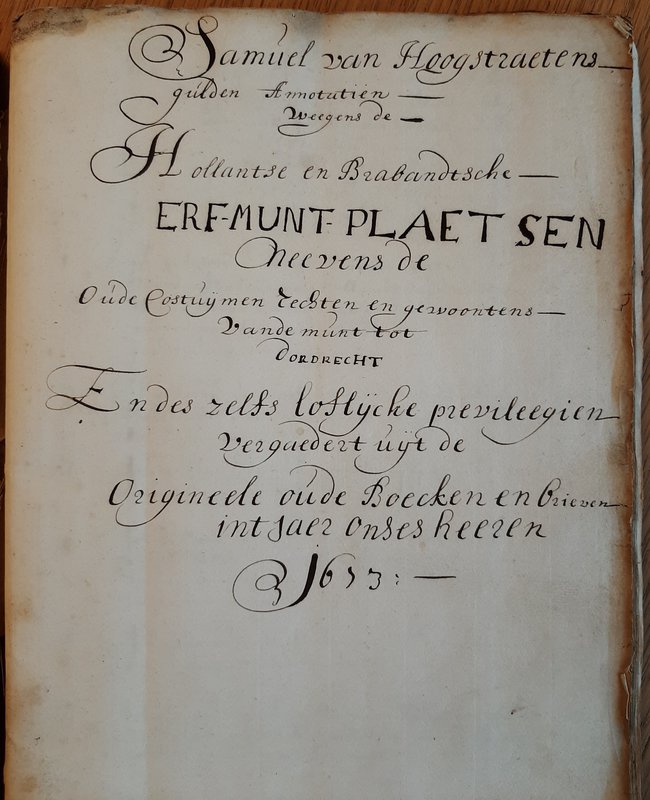 Samuel van Hoogstraetens
gulden Annotatien
Weegens de
Hollantse en Brabandtsche
ERF-MUNT-PLAETSEN
Neevens de
Oude Costuijmen rechten en gewoontens
Vande munt tot
DORDRECHT
Endes zelfs loflijcke previleegien
vergaedert uijt de
Origineele oude Boecken en brieven
int jaer onses heeren
1653: